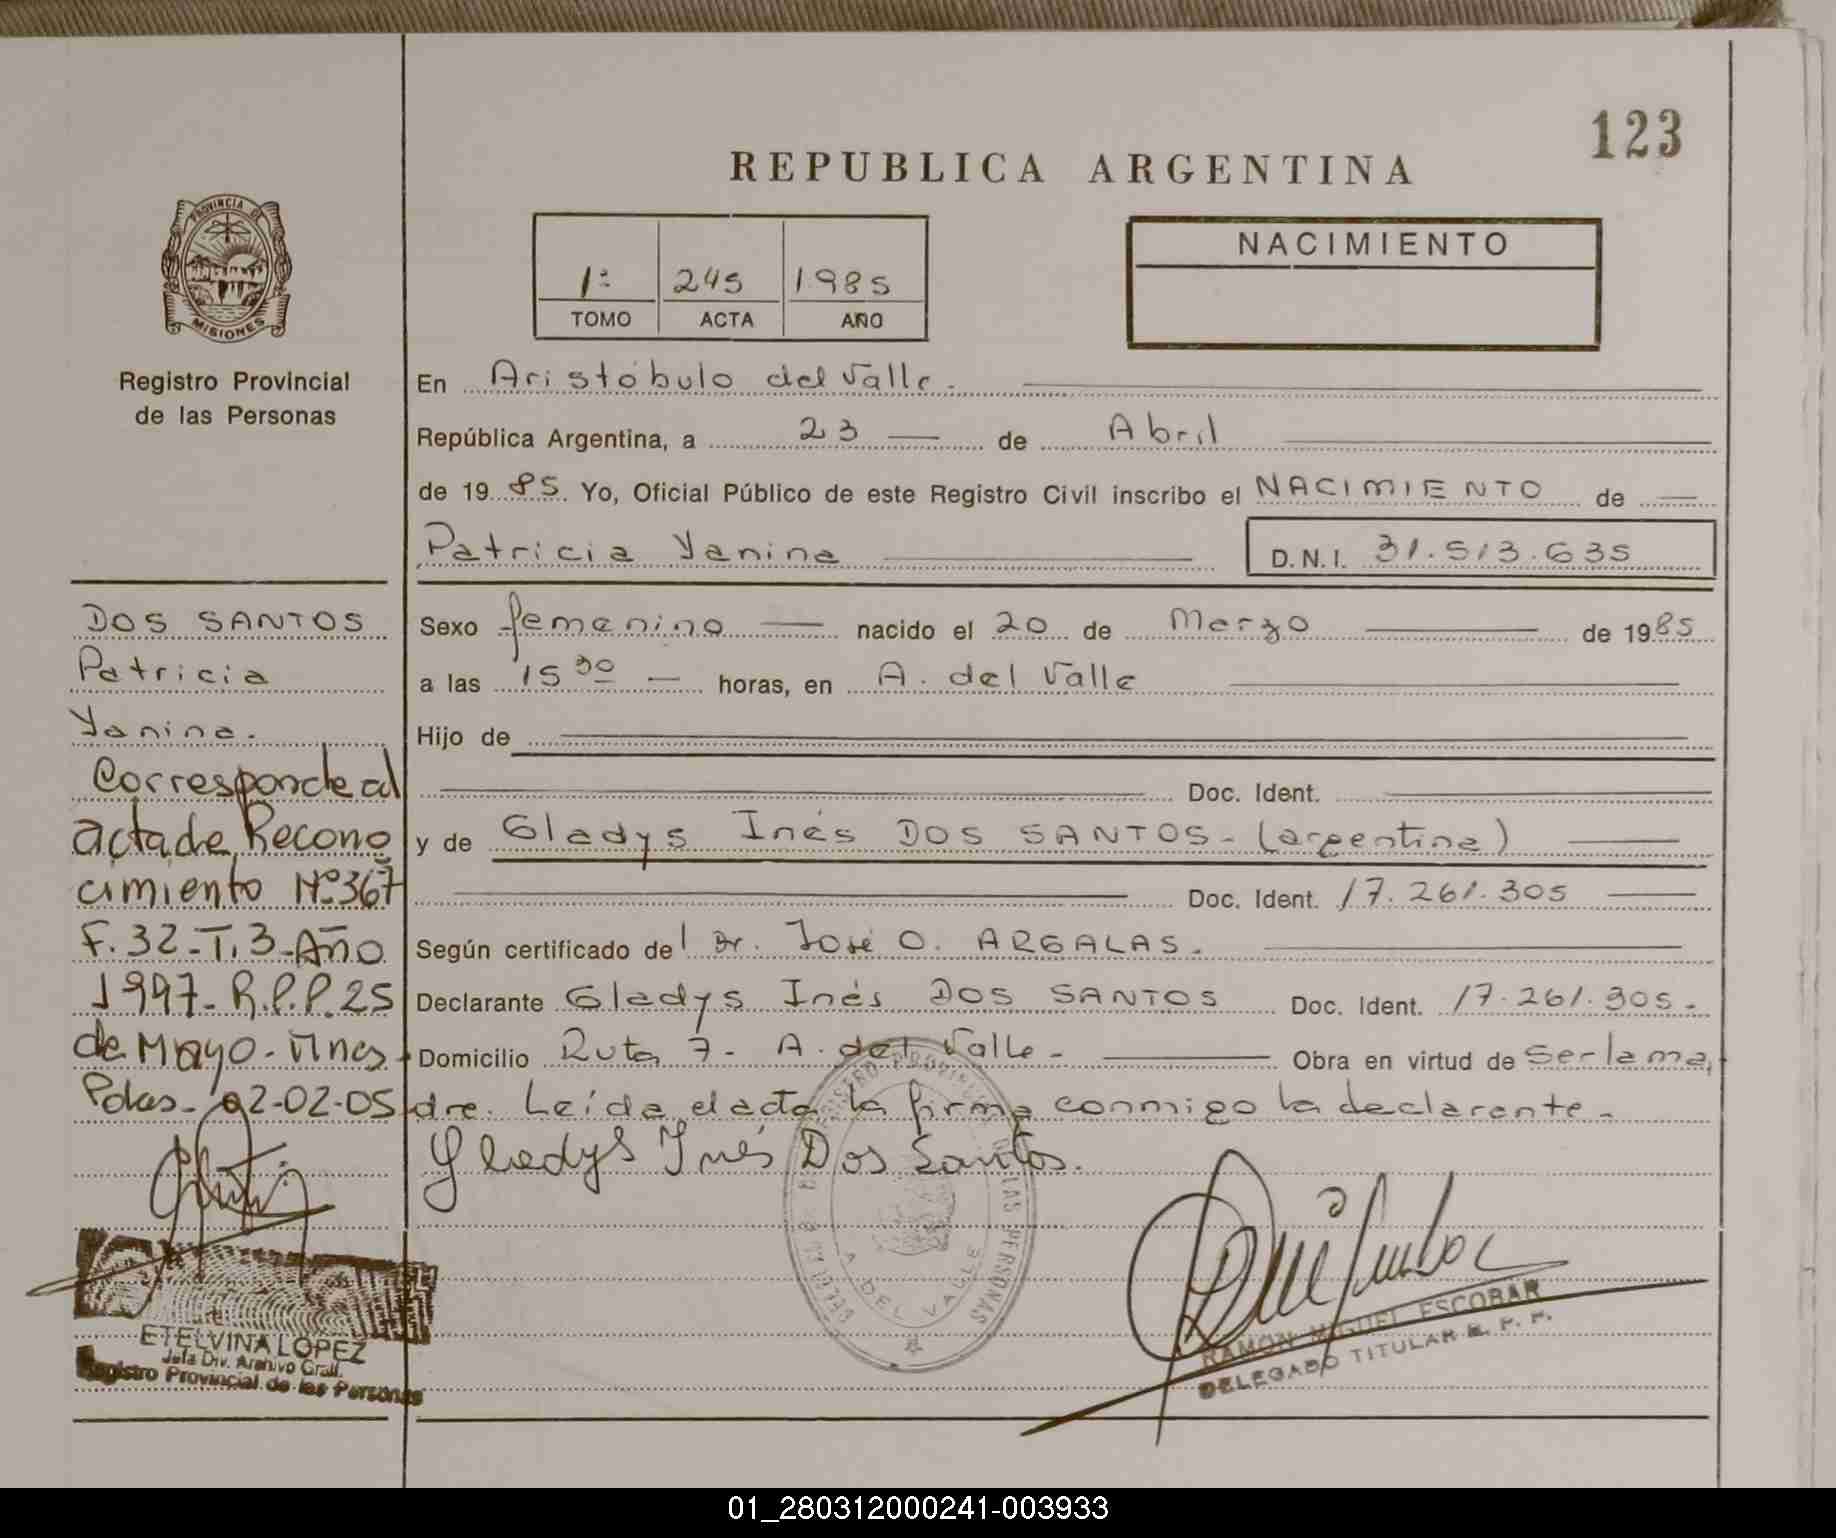 123
REPUBLICA ARGENTINA
PROVINCIA DE
MISIONES
Registro Provincial
de las Personas
1º 245 1985
TOMO ACTA AÑO
NACIMIENTO
En Aristóbulo del Valle.
República Argentina, a 23 de Abril
de 1985 Yo, Oficial Público de este Registro Civil inscribo el NACIMIENTO de
Patricia Yanina D.N.I. 31.513.635
Sexo femenino nacido el 20 de Marzo de 1985
a las 15 30 horas, en A. del Valle
Hijo de
Doc. Ident.
y de Gladys Inés DOS SANTOS - (argentina)
Doc. Ident. 17.261.305
Según certificado del Dr. José O. ARGALAS.
Declarante Gladys Inés DOS SANTOS Doc. Ident. 17.261.305.-
Domicilio Ruta 7 - A. del Valle - Obra en virtud de Ser la ma
dre. Leída el acta la firma conmigo la declarante.
Gladys Inés Dos Santos.
A DEL VALLE
RAMON MIGUEL ESCOBAR
DELEGADO TITULAR R. P. P.
DOS SANTOS
Patricia
Yanina.
Corresponde al
acta de Recono
cimiento Nº 367
F. 32 - T. 3 - Año
1997 - R.P.P. 25
de Mayo - Mnes
Pdas - 02-02-05
ETELVINA LOPEZ
Jefa Div. Archivo Gral.
Registro Provincial de las Personas
01_280312000241-003933